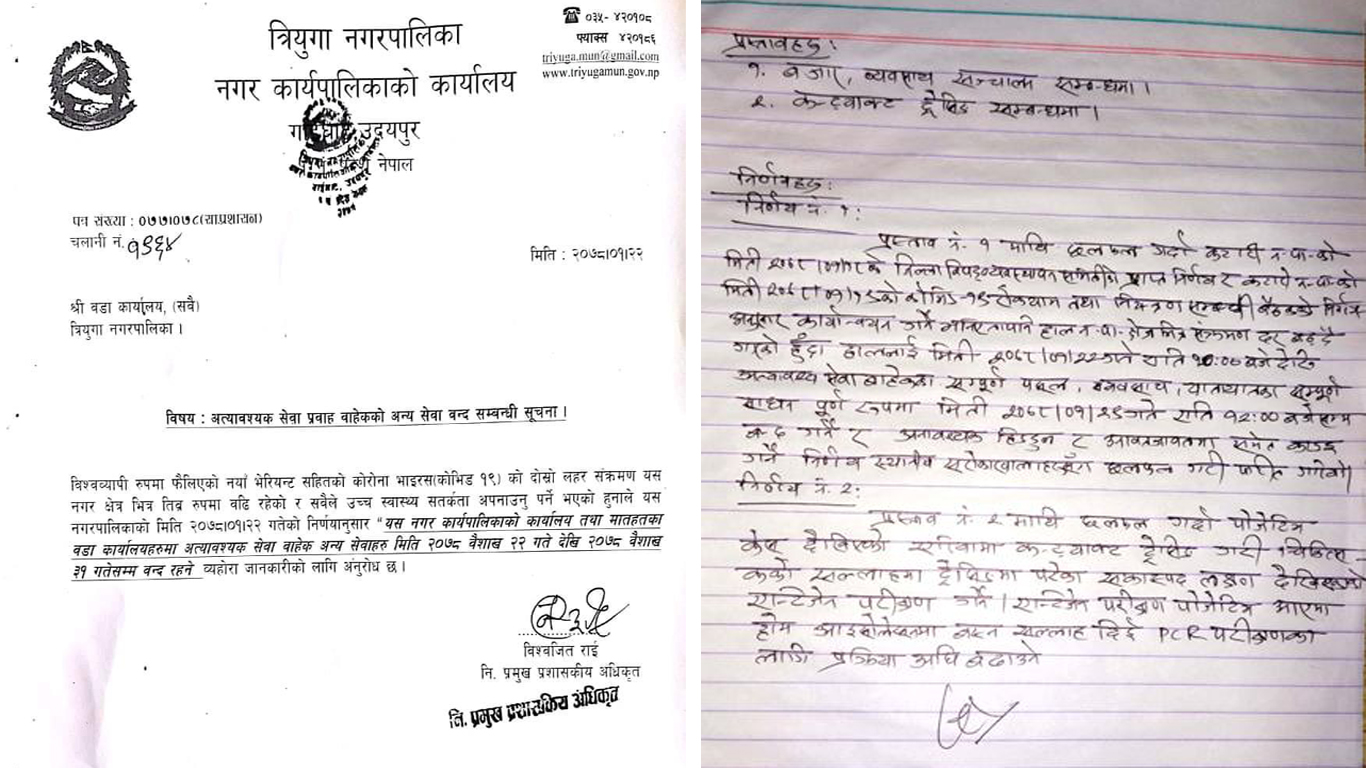 त्रियुगा नगरपालिका
नगर कार्यपालिकाको कार्यालय
उदयपुर
नेपाल
०३५- ४२०१०८
फ्याक्स ४२०१८६
triyuga.mun@gmail.com
www.triyugamun.gov.np
पत्र संख्या : ०७७।०७८(याप्रशायन)
चलानी नं. १९६४
मिति : २०७८।०१।२२
श्री वडा कार्यालय, (सवै)
त्रियुगा नगरपालिका ।
विषय : अत्यावश्यक सेवा प्रवाह वाहेकको अन्य सेवा वन्द सम्बन्धी सूचना ।
विश्वव्यापी रुपमा फैलिएको नयाँ भेरियन्ट सहितको कोरोना भाइरस(कोभिड १९) को दोस्रो लहर संक्रमण यस
नगर क्षेत्र भित्र तिव्र रुपमा वढि रहेको र सवैले उच्च स्वास्थ्य सतर्कता अपनाउनु पर्ने भएको हुनाले यस
नगरपालिकाको मिति २०७८।०१।२२ गतेको निर्णयानुसार "यस नगर कार्यपालिकाको कार्यालय तथा मातहतका
वडा कार्यालयहरुमा अत्यावश्यक सेवा वाहेक अन्य सेवाहरु मिति २०७८ वैशाख २२ गते देखि २०७८ वैशाख
३१ गतेसम्म वन्द रहने व्यहोरा जानकारीको लागि अनुरोध छ ।
विश्वजित राई
नि. प्रमुख प्रशासकीय अधिकृत
नि. प्रमुख प्रशासकिय अधिकृत
प्रस्तावहरु :
१. बजार, व्यवसाय सञ्चालन सम्बन्धमा ।
२. कन्ट्याक्ट ट्रेसिङ सम्बन्धमा ।
निर्णयहरु :
निर्णय नं. १ :
प्रस्ताव नं. १ माथि छलफल गर्दा कटारी न.पा.को
मिती के जिल्ला विपद् व्यवस्थापन समितीको प्राप्त निर्णय र कटारी न.पा.को
मिती को कोभिड-१९ रोकथाम तथा नियन्त्रण सम्बन्धी बैठकको निर्णय
अनुसार कार्यान्वयन गर्ने भनिए तापनि हाल न.पा. क्षेत्र भित्र संक्रमण दर बढ्दै
गएको हुँदा हाललाई मिती २०७८।०१।२२ गते राति १०:०० बजे देखि
अत्यावश्यक सेवा बाहेकका सम्पूर्ण पसल, व्यवसाय, यातायातका सम्पूर्ण
साधन पूर्ण रुपमा मिती २०७८।०१।२९ गते राति १२:०० बजे सम्म
बन्द गर्ने र अनावश्यक हिँडडुल र आवतजावतमा समेत कडाइ
गर्ने निर्णय स्थानीय सरोकारवालाहरुसँग छलफल गरी पारित गरियो।
निर्णय नं. २ :
प्रस्ताव नं. २ माथि छलफल गर्दा पोजेटिभ
केस देखिएको एरियामा कन्ट्याक्ट ट्रेसिङ गरी चिकित्स-
कको सल्लाहमा ट्रेसिङमा परेका शंकास्पद लक्षण देखिएकाको
एन्टिजेन परीक्षण गर्ने । एन्टिजेन परीक्षण पोजेटिभ आएमा
होम आइसोलेसनमा बस्न सल्लाह दिई PCR परीक्षणका
लागि प्रक्रिया अघि बढाउने